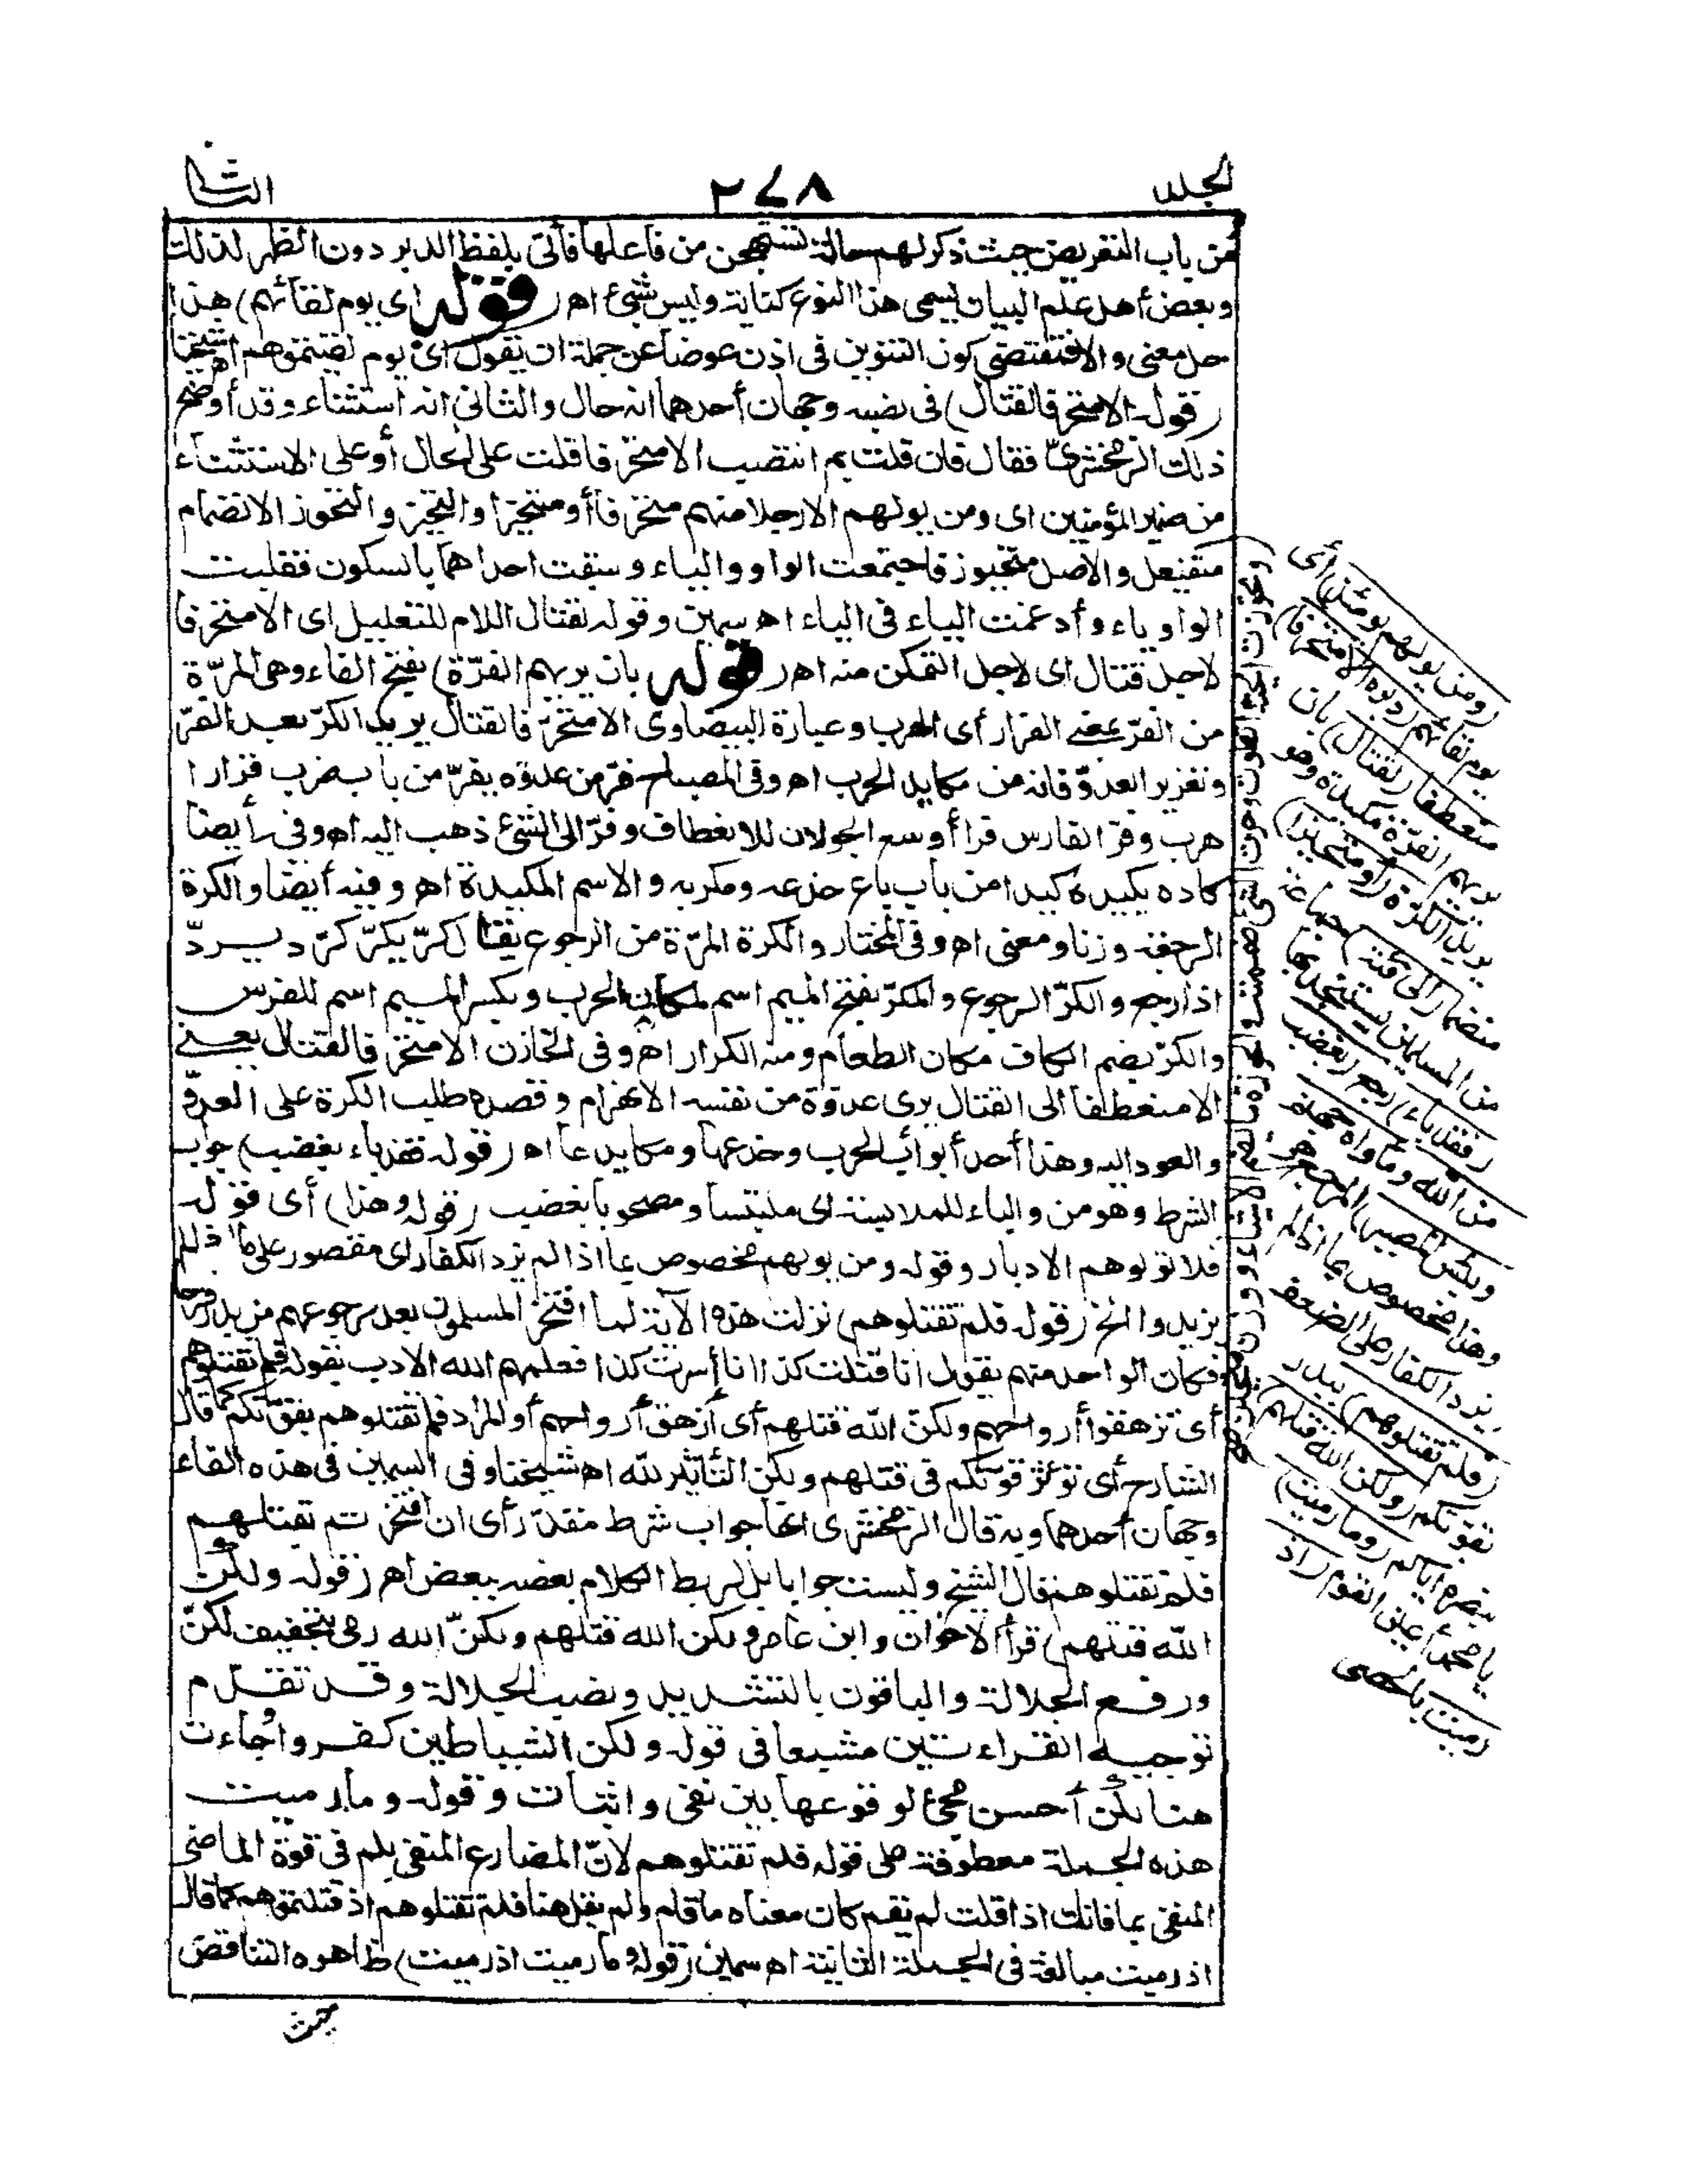 الجلد
٢٧٨
الثانى
من باب التعريض حيث ذكر لهم حالة تستهجن من فاعلها فأتى بلفظ الدبر دون الظهر لذلك
وبعض أهل علم البيان يسمى هذا النوع كناية وليس بشئ اهـ (قوله اى يوم لقائهم) هذا
حل معنى والا فمقتضى كون التنوين فى اذن عوضا عن جملة ان يقول اى يوم لقيتموهم اهـ شيخنا
(قوله الا متحرفا لقتال) فى نصبه وجهان أحدهما انه حال والثانى انه استثناء وقد أوضح
ذلك الزمخشرىّ فقال فان قلت بم انتصب الا متحرّفا قلت على الحال أو على الاستثناء
من ضمير المؤمنين اى ومن يولهم الا رجلا منهم متحرّفا أو متحيزا والتحيز والتحوز الانضمام
متفيعل والاصل متحيوز فاجتمعت الواو والياء وسبقت احداهما بالسكون فقلبت
الواو ياء وأدغمت الياء فى الياء اهـ سمين وقوله لقتال اللام للتعليل اى الا متحرّفا
لاجل قتال اى لاجل التمكن منه اهـ (قوله بان يريهم الفرّة) بفتح الفاء وهى المرّة
من الفرّ بمعنى الفرار أى الهرب وعبارة البيضاوى الا متحرّفا لقتال يريد الكرّ بعد الفرّ
وتغرير العدوّ فانه من مكايد الحرب اهـ وفى المصباح فرّ من عدوّه يفرّ من باب ضرب فرارا
هرب وفرّ الفارس فرا أوسع الجولان للانعطاف وفرّ الى الشئ ذهب اليه اهـ وفيه أيضا
كاده يكيده كيدا من باب باع خدعه ومكر به والاسم المكيدة اهـ وفيه أيضا والكرة
الرجعة وزنا ومعنى اهـ وفى المختار والكرة المرّة من الرجوع يقال كرّ يكرّ كرّ ديردّ
اذا رجع والكرّ الرجوع والمكرّ بفتح الميم اسم لمكان الحرب وبكسر الميم اسم للفرس
والكرّ بضم الكاف مكان الطعام ومنه الكرار اهـ وفى الخازن الا متحرّفا لقتال يعنى
الا منعطفا الى القتال يرى عدوّه من نفسه الانهزام وقصده طلب الكرة على العدوّ
والعود اليه وهذا أحد أبواب الحرب وخدعها ومكايدها اهـ (قوله فقد باء بغضب) جواب
الشرط وهو من والباء للملابسة اى ملتبسا ومصحوبا بغضب (قوله وهذا) أى قوله
فلا تولوهم الادبار وقوله ومن يولهم مخصوص بما اذا لم يزد الكفار اى مقصور على ما اذا لم
يزيدوا الخ (قوله فلم تقتلوهم) نزلت هذه الآية لما افتخر المسلمون بعد رجوعهم من بدر
فكان الواحد منهم يقول أنا قتلت كذا انا أسرت كذا فعلمهم الله الادب بقوله فلم تقتلوهم
أى تزهقوا أرواحهم ولكنّ الله قتلهم أى أزهق أرواحهم أو المراد فلم تقتلوهم بقوّتكم كما قال
الشارح أى تؤثر قوّتكم فى قتلهم ولكن التأثير لله اهـ شيخنا وفى السمين فى هذه الفاء
وجهان أحدهما وبه قال الزمخشرى انها جواب شرط مقدّر أى ان افتخرتم بقتلهم
فلم تقتلوهم قال الشيخ وليست جوابا بل لربط الكلام بعضه ببعض اهـ (قوله ولكنّ
الله قتلهم) قرأ الاخوان وابن عامر ولكن الله قتلهم ولكنّ الله رمى بتخفيف لكنّ
ورفع الجلالة والباقون بالتشديد ونصب الجلالة وقد تقدّم
توجيه القراءتين مشبعا فى قوله ولكن الشياطين كفروا وجاءت
هنا لكن أحسن مجئ لوقوعها بين نفى واثبات وقوله وما رميت
هذه الجملة معطوفة على قوله فلم تقتلوهم لانّ المضارع المنفى بلم فى قوّة الماضى
المنفى بما فانك اذا قلت لم يقم كان معناه ما قام ولم يقل هنا فلم تقتلوهم اذ قتلتموهم كما قال
اذ رميت مبالغة فى الجملة الثانية اهـ سمين (قوله وما رميت اذ رميت) ظاهره التناقض
حيث
(ومن يولهم يومئذ) أى
يوم لقائهم (دبره الا متحرفا)
منعطفا (لقتال) بان
يريهم الفرّة مكيدة وهو
يريد الكرّة (أو متحيزا)
منضما (الى فئة) جماعة
من المسلمين يستنجد بها
(فقد باء) رجع (بغضب
من الله ومأواه جهنم
وبئس المصير) المرجع هى
وهذا مخصوص بما اذا لم
يزد الكفار على الضعف
(فلم تقتلوهم) ببدر
بقوّتكم (ولكن الله قتلهم)
بنصره اياكم (وما رميت)
يا محمد أعين القوم (اذ
رميت) بالحصى